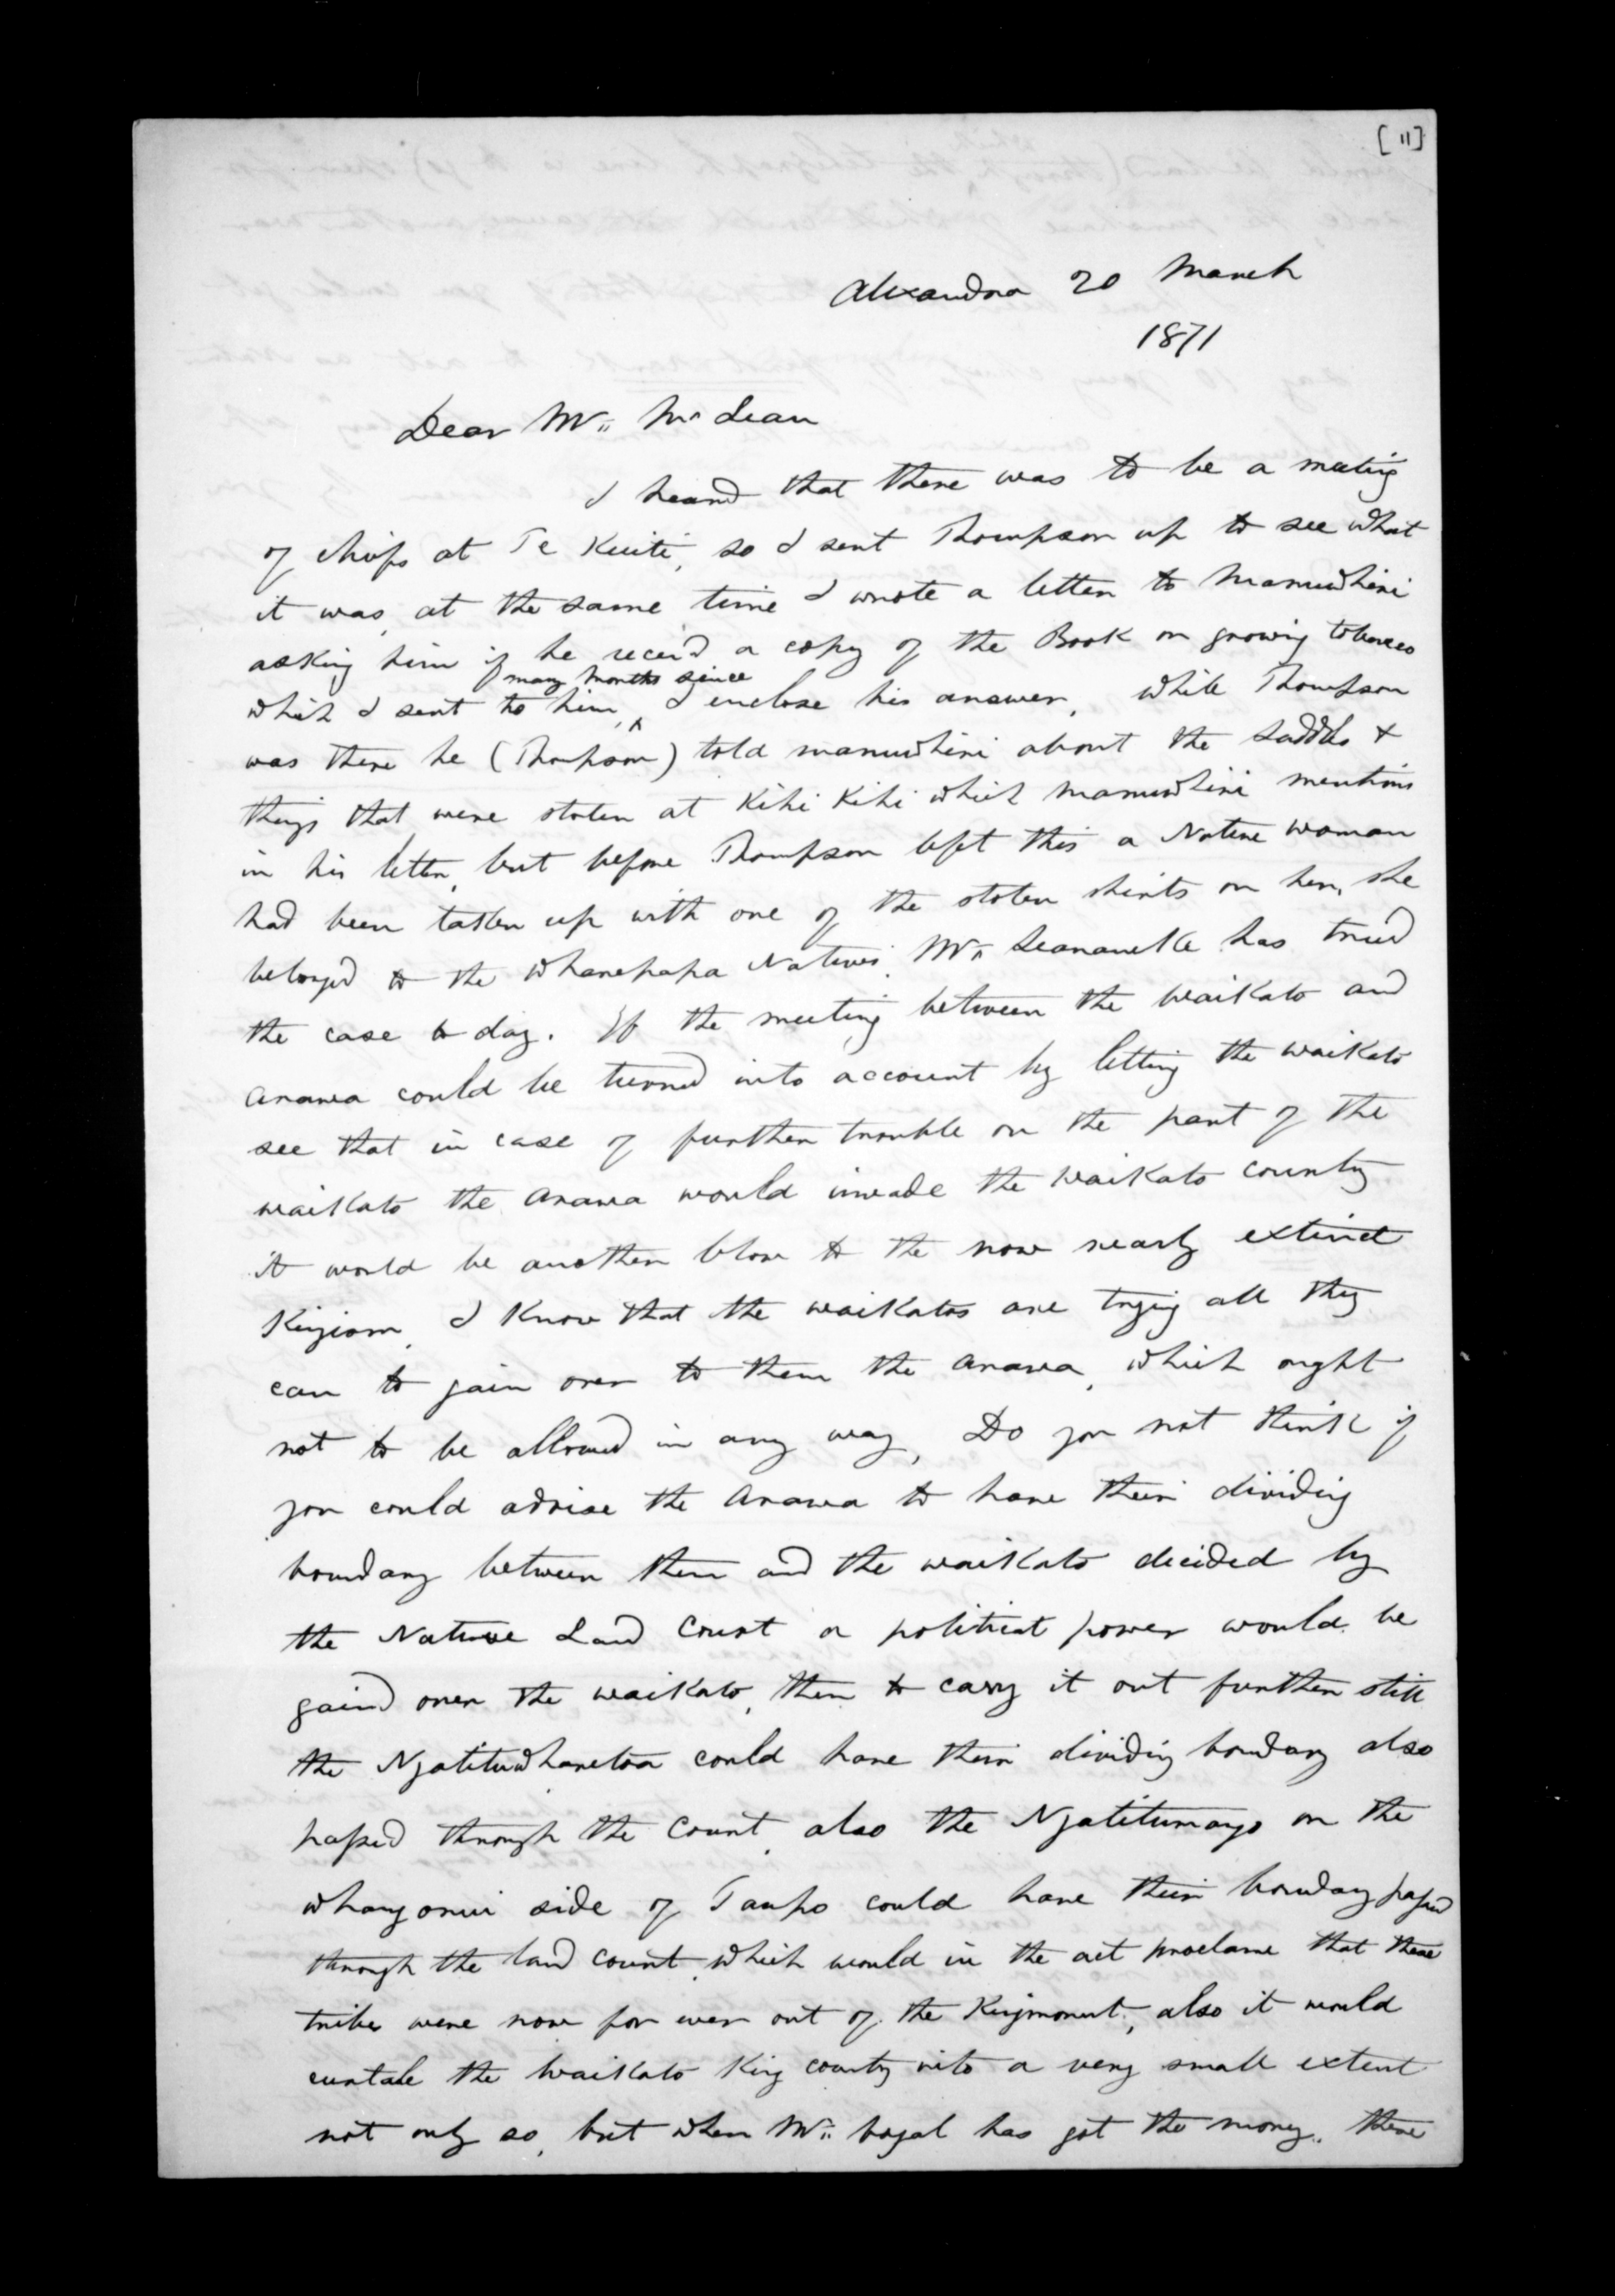 [11]
Alexandra 20 March
1871
Dear Mr. McLean
I heard that there was to be a meeting
of chiefs at Te Kuiti, so I sent Thompson up to see what
it was, at the same time I wrote a letter to Manuwhiri
asking him if he recei'd a copy of the Book on growing tobacco
many months since
which I sent to him, ^ I enclose his answer, while Thompson
was there he (Thompson) told manuwhiri about the saddles &
things that were stolen at Kihi Kihi which manuwhiri mentions
in his letter, but before Thompson left this a Native woman
had been taken up with one of the stolen shirts on her, she
belonged to the Wharepapa Natives, Mr. Searancke has tried
the case to day. If the meeting between the Waikato and
Arawa could be turned into account by letting the Waikato
see that in case of further trouble on the part of the
Waikato the Arawa would invade the Waikato country
it would be another blow to the now nearly extinct
Kingism, I know that the Waikatos are trying all they
can to gain over to them the Arawa, which ought
not to be allowed in any way, Do you not think if
you could advise the Arawa to have their dividing
boundary between them and the Waikato decided by
the Native Land Court a political power would be
gaind over the Waikato, then to carry it out further still
the Ngatituwharetoa could have their dividing boundary also
passed through the Court, also the Ngatitumango on the
Whanganui side of Taupo could have their boundary passed
through the land court, which would in the act proclame that these
tribes were now for ever out of the Kingmovnt, also it would
curtale the Waikato King country into a very small extent
not only so, but when Mr. Vogal has got the money, there